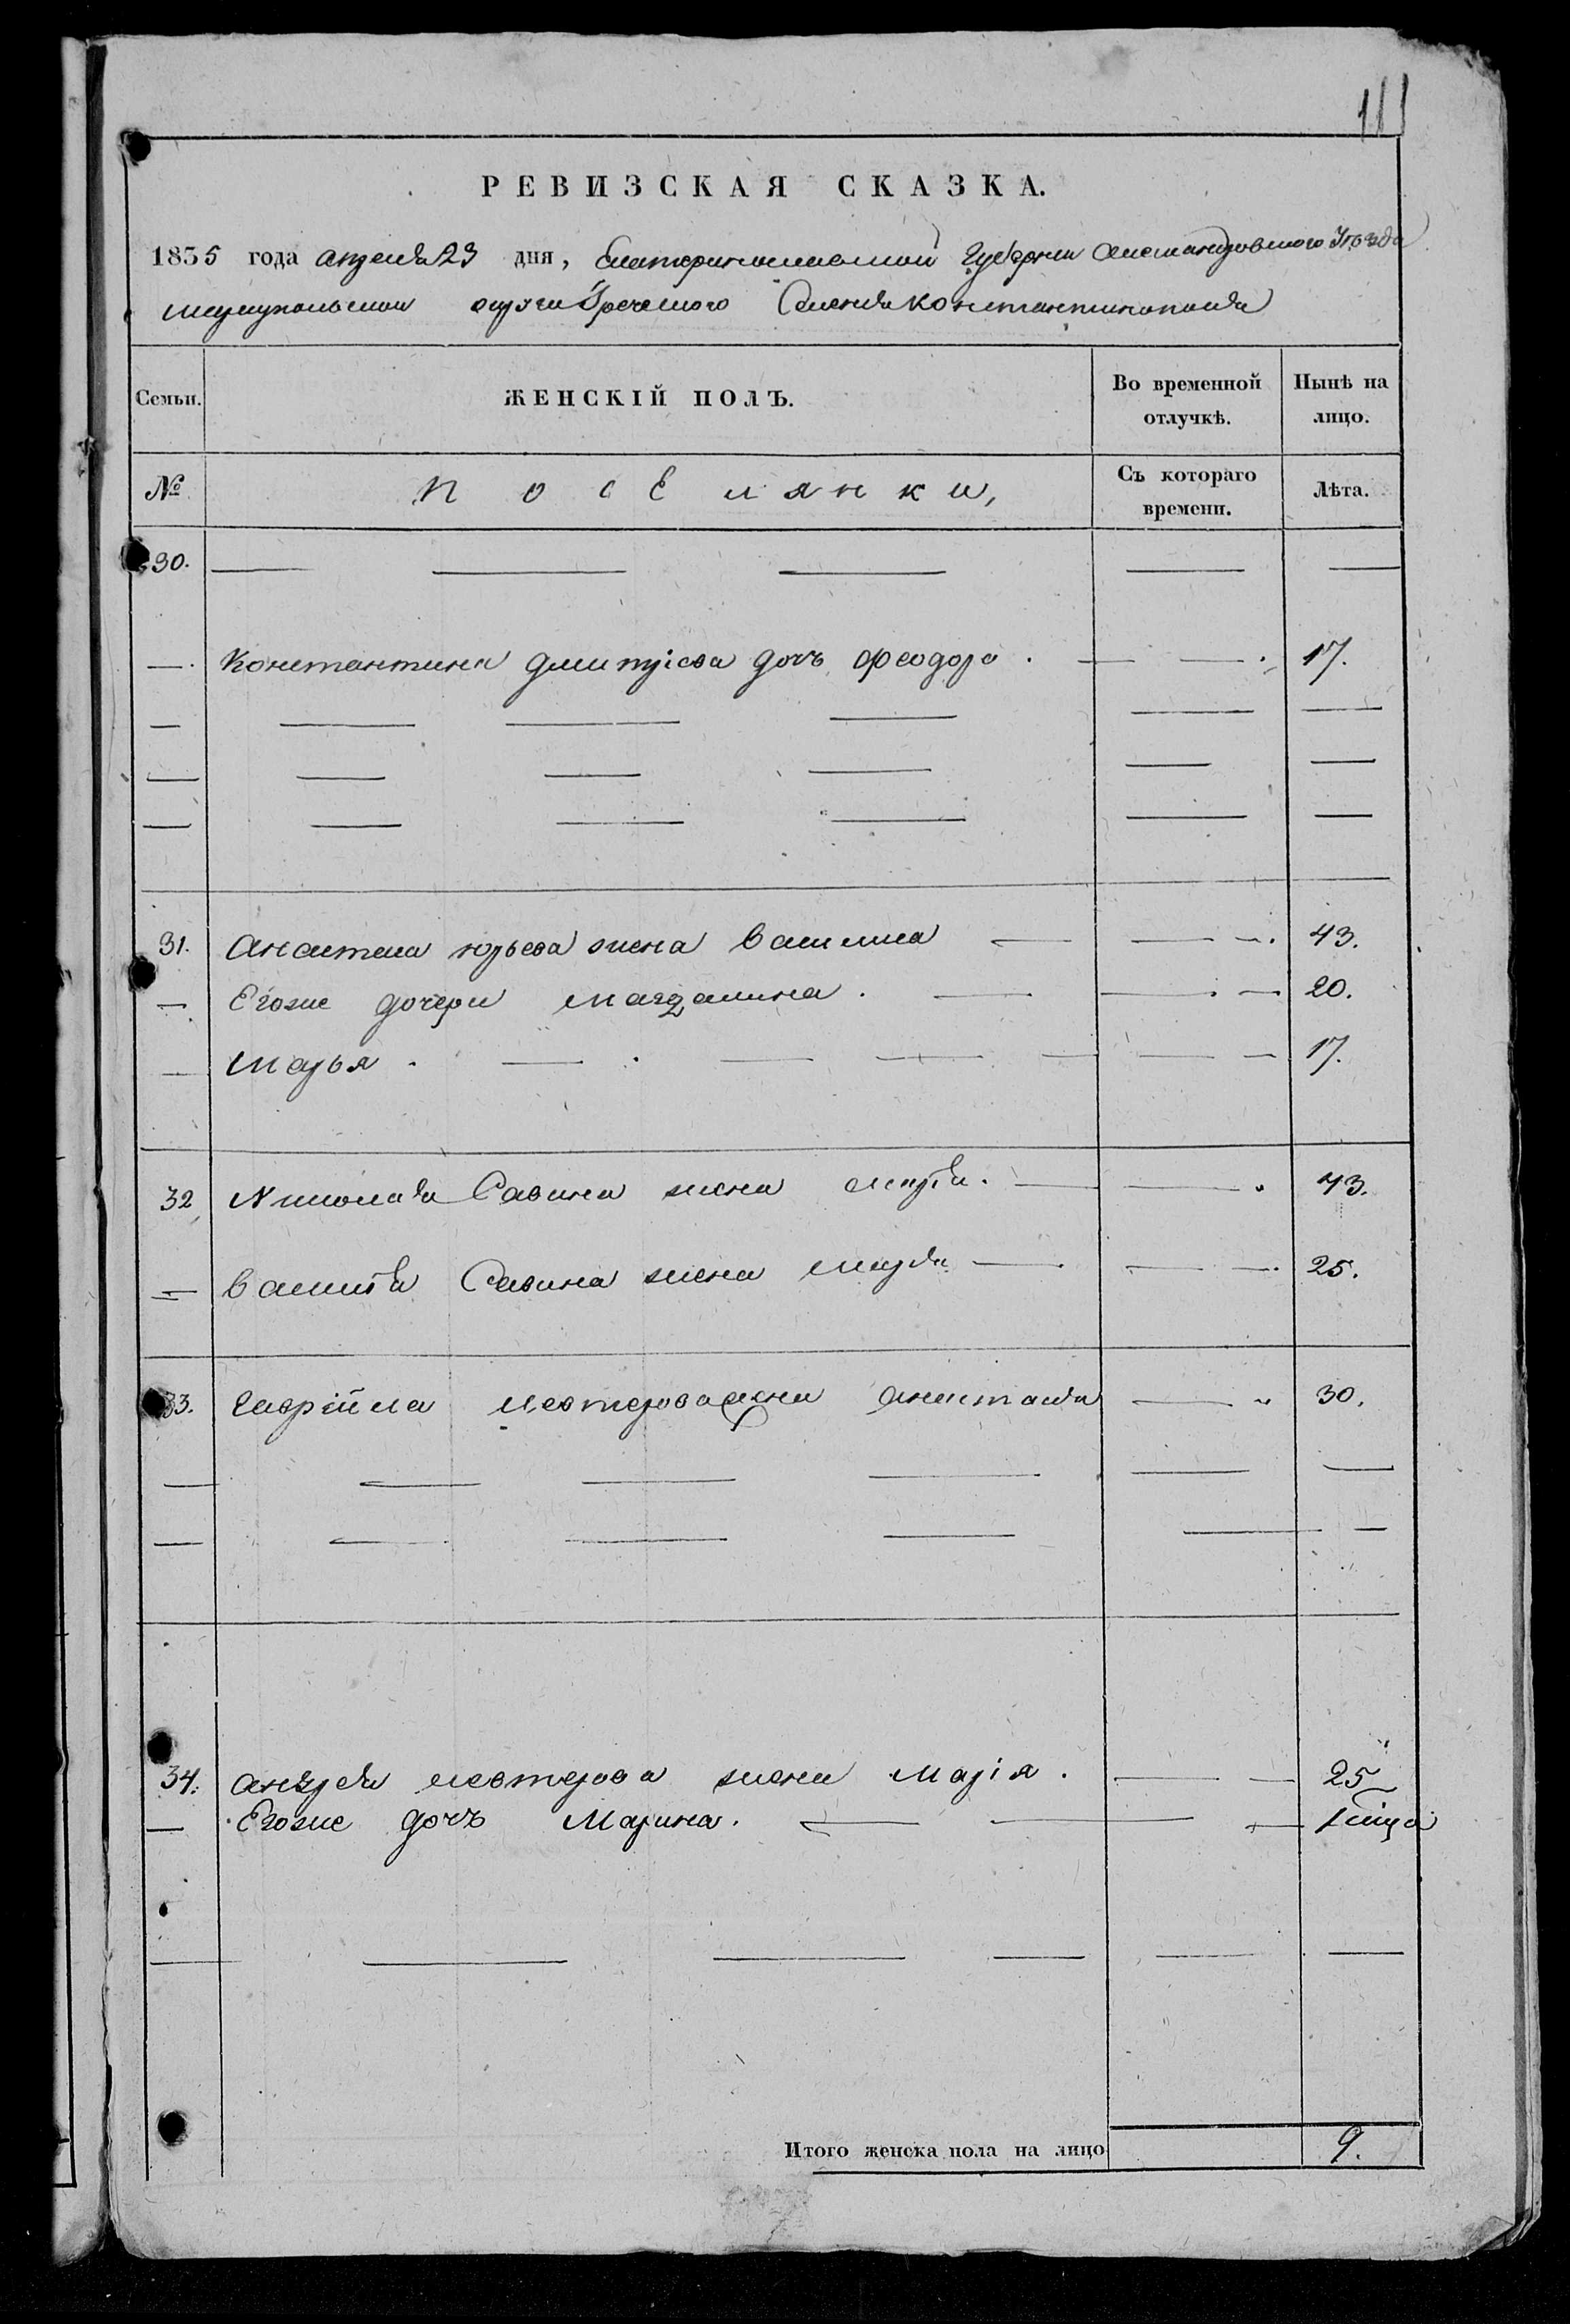 111
РЕВИЗСКАЯ СКАЗКА.
1835 года апреля 23 дня, Екатеринославской Губернии Александровского Уѣзда
мариупольском округи Греческого Селения константинополя
Семьи. ЖЕНСКІЙ ПОЛЪ. Во временной отлучкѣ. Нынѣ на лицо.
№ поселянки, Съ котораго времени. Лѣта.
30.
Константина дмитріева дочь феодора . 17.
31. Анастаса юрьева жена василика 43.
Егоже дочери магдалина . 20.
марья . 17.
32 Николая Савина жена марія . 43.
василія Савина жена марія 25.
33. гавріила нестерова жена анастасія 30.
34. андрея нестерова жена марія . 25
Егоже дочь Марина .
Итого женска пола на лицо 9.